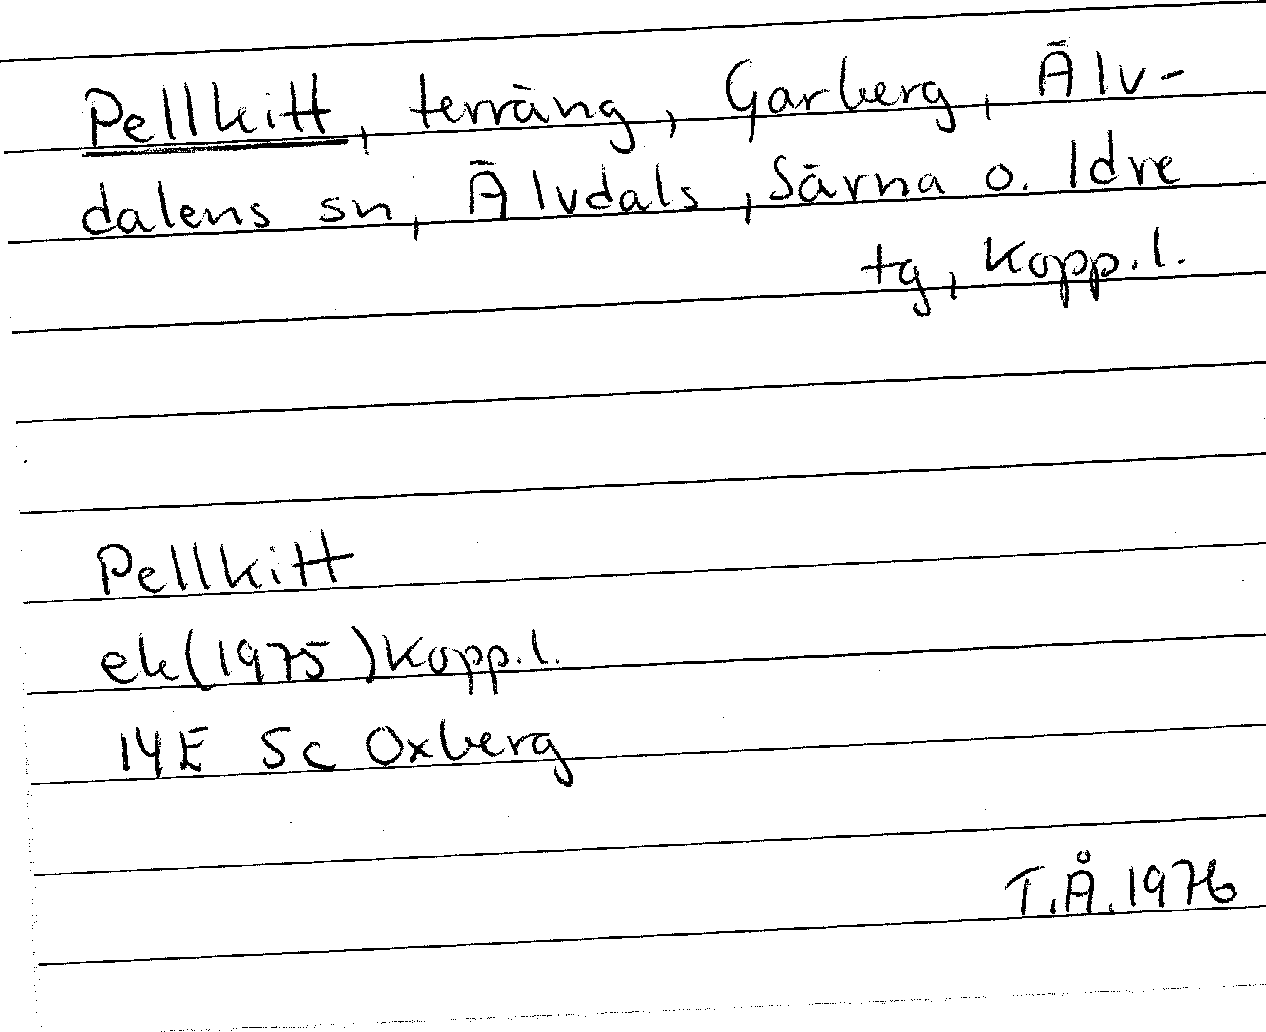 Pellkitt, terräng, Garberg, Älv-
dalens sn, Älvdals, Särna o. Idre
tg, Kopp.l.
Pellkitt
ek(1975)Kopp.l.
14E 5c Oxberg
T.Å.1976